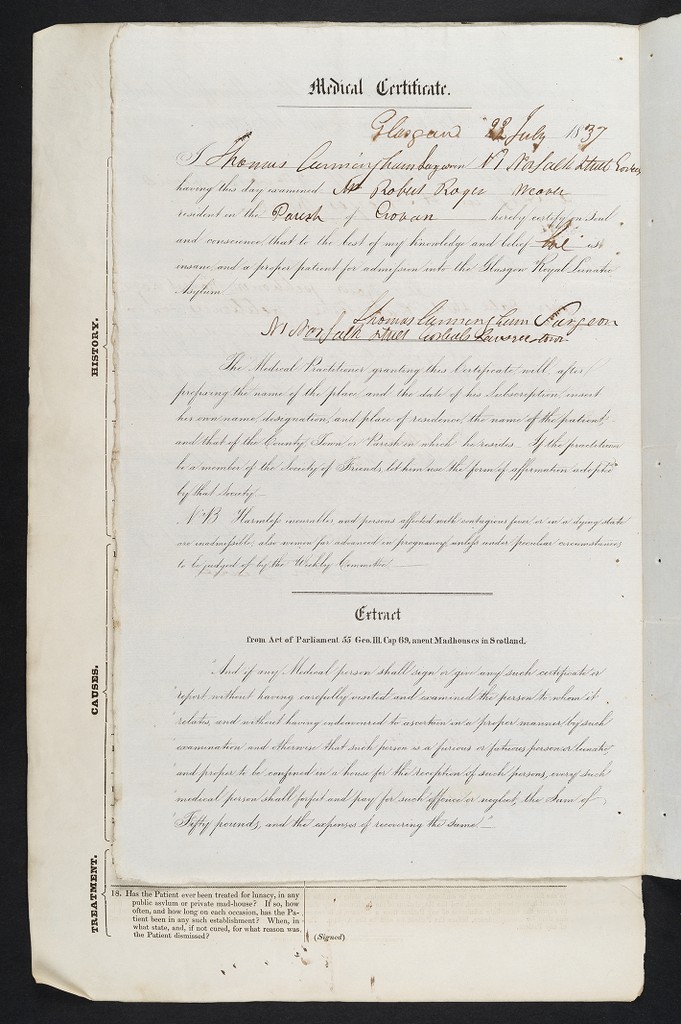 Medical Certificate.
Glasgow 22 July 1837
I Thomas Cunningham Surgeon No 1 Norfolk Street
having this day examined Mr Robert Roger Weaver
resident in the Parish of Govan hereby certify on soul
and conscience, that to the best of my knowledge and belief he is
insane and a proper patient for admission into the Glasgow Royal Lunatic
Asylum
Thomas Cunningham Surgeon
No 1 Norfolk Street
The Medical Practitioner granting this Certificate will, after
prefixing the name of the place, and the date of his Subscription, insert
his own name, designation, and place of residence, the name of the patient,
and that of the County, Town, or Parish in which he resides. If the practitioner
be a member of the Society of Friends, let him use the form of affirmation adopted
by that Society
N.B. Harmless incurables, and persons affected with contagious fever or in a dying state
are inadmissible; also women far advanced in pregnancy, unless under peculiar circumstances,
to be judged of by the Weekly Committee
Extract
from Act of Parliament 55 Geo. III. Cap 69, anent Madhouses in Scotland.
"And if any Medical person shall sign or give any such certificate or
report without having carefully visited and examined the person to whom it
relates, and without having endeavoured to ascertain in a proper manner by such
examination and otherwise that such person is a furious or fatuous person or lunatic,
and proper to be confined in a house for the reception of such persons, every such
medical person shall forfeit and pay for such offence or neglect, the Sum of
Fifty pounds, and the expenses of recovering the same."
HISTORY.
CAUSES.
TREATMENT.
18. Has the Patient ever been treated for lunacy, in any
public asylum or private mad-house? If so, how
often, and how long on each occasion, has the Pa-
tient been in any such establishment? When, in
what state, and, if not cured, for what reason was
the Patient dismissed?
(Signed)